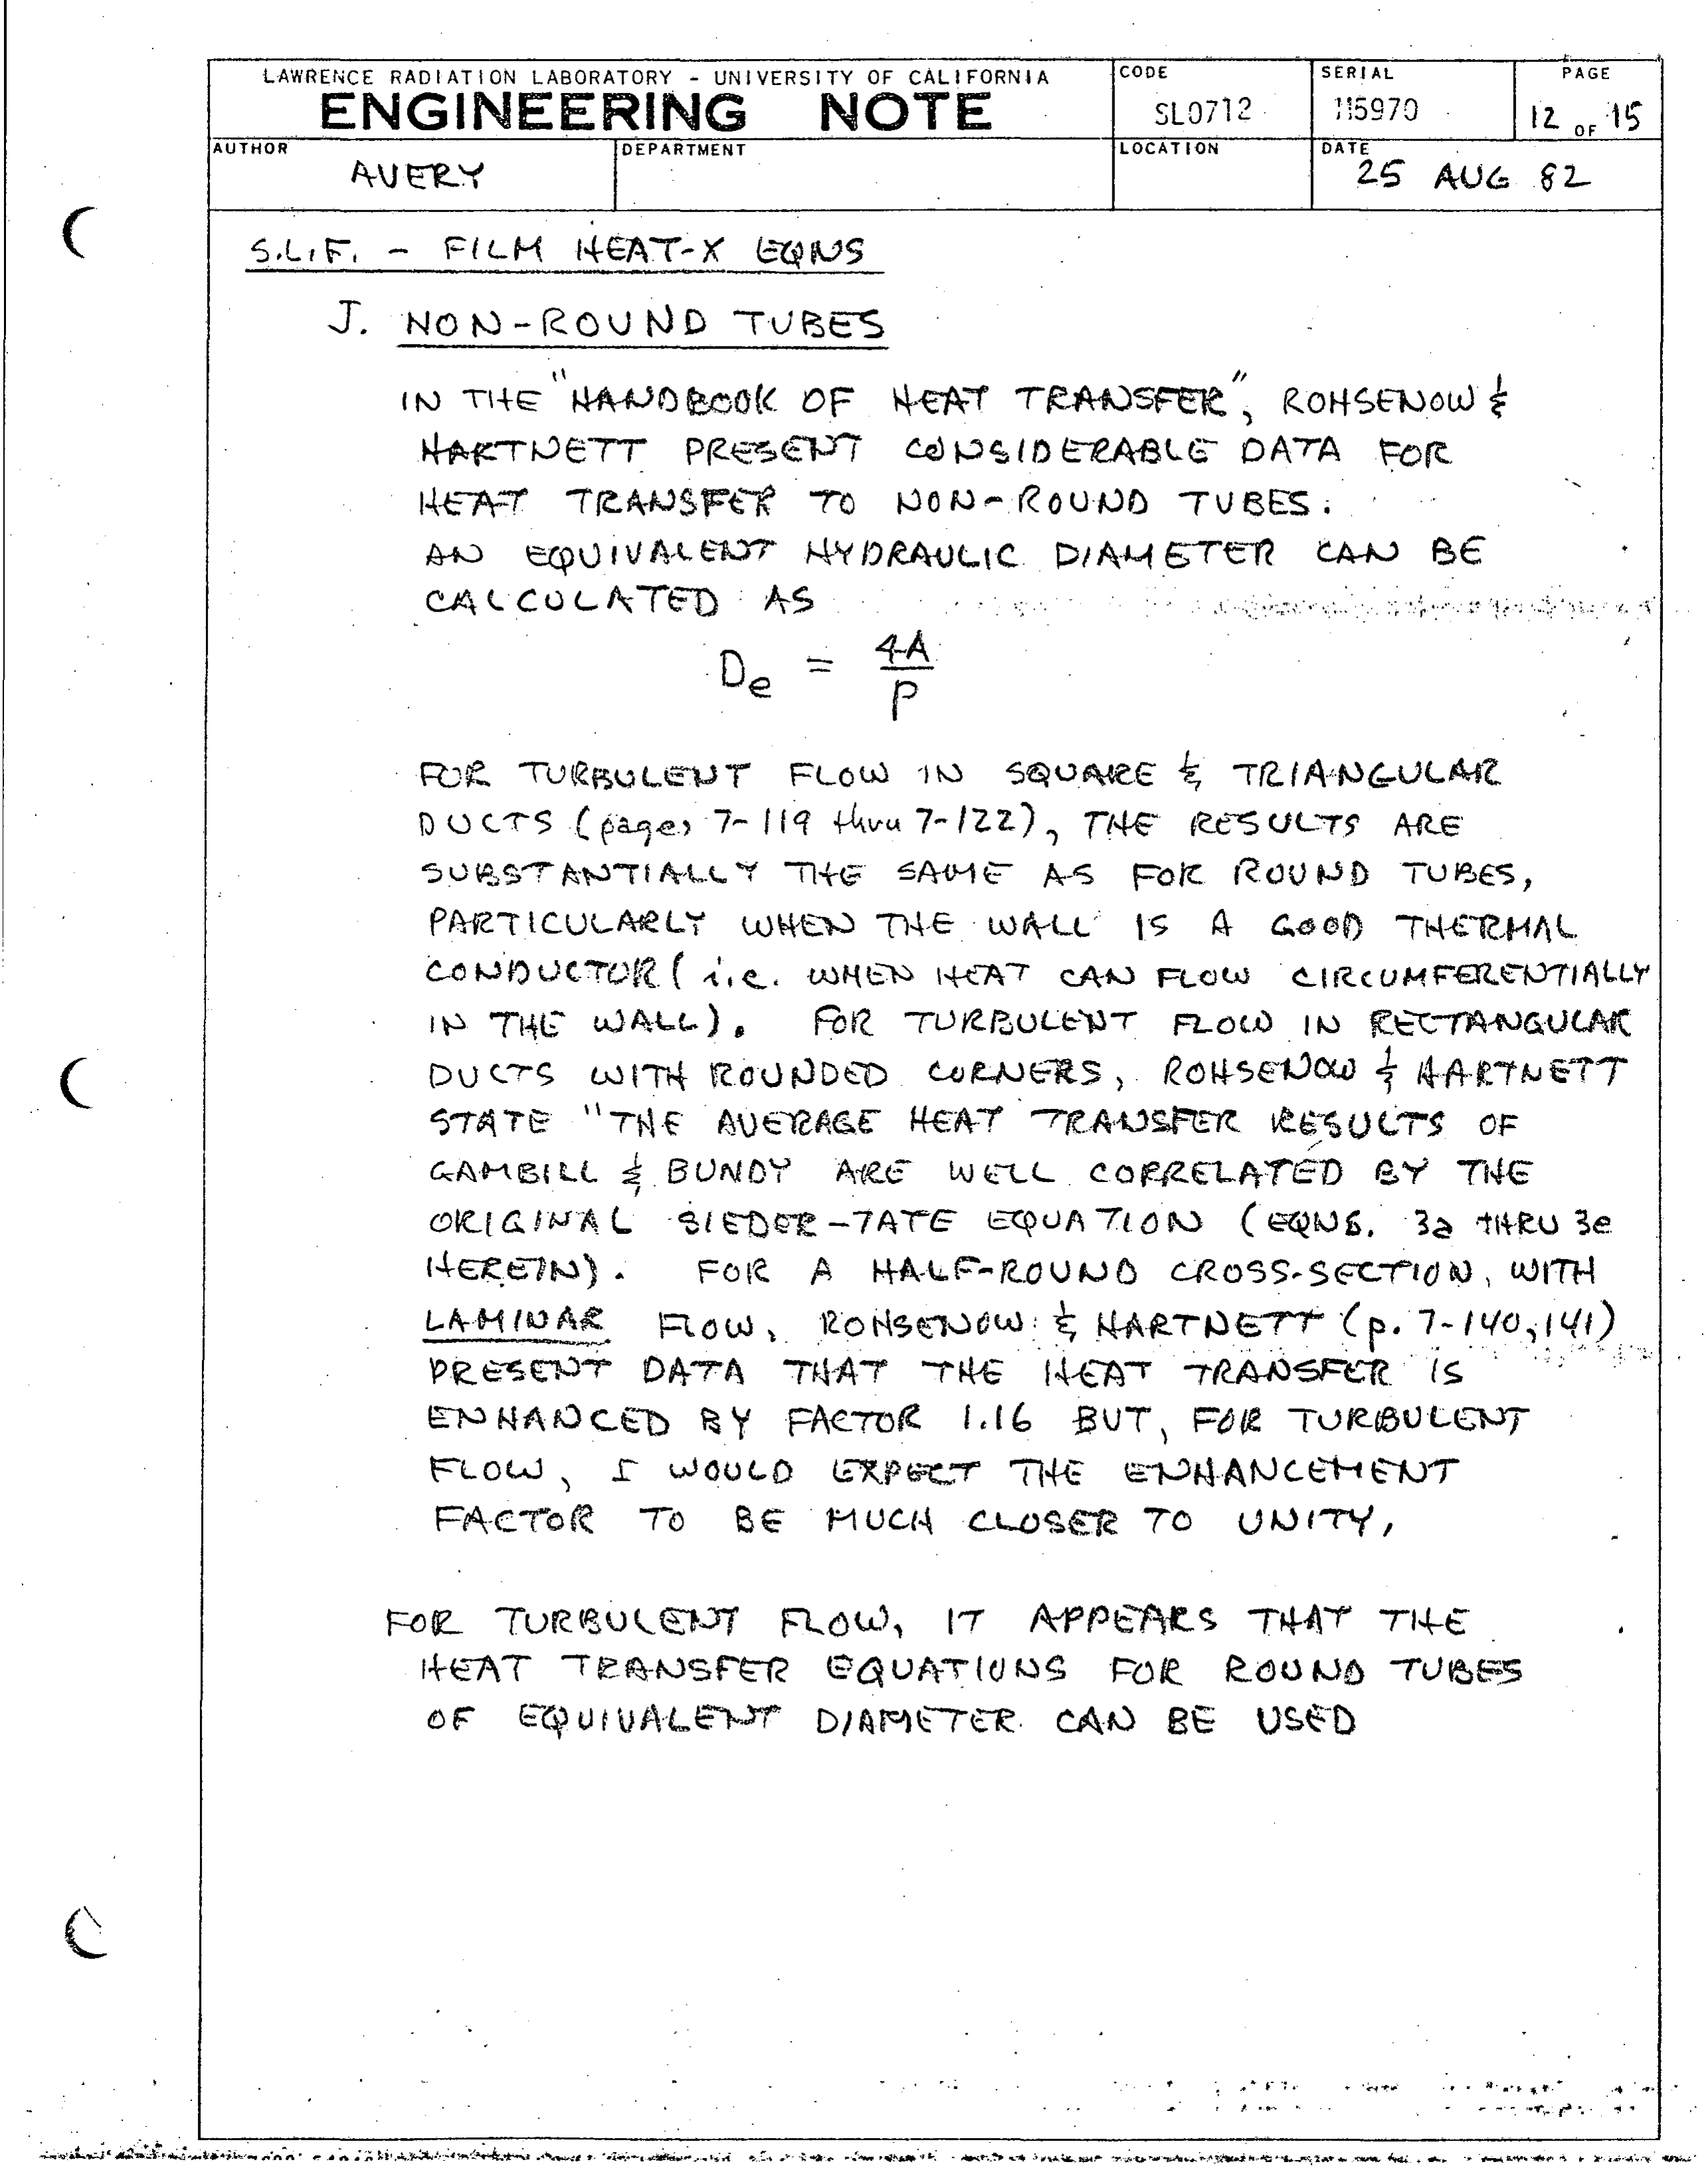 LAWRENCE RADIATION LABORATORY - UNIVERSITY OF CALIFORNIA
ENGINEERING NOTE
CODE
SL0712
SERIAL
M5970
PAGE
12 OF 15
AUTHOR
AVERY
DEPARTMENT
LOCATION
DATE
25 AUG 82
S.L.F. - FILM HEAT-X EQNS
J. NON-ROUND TUBES
IN THE "HANDBOOK OF HEAT TRANSFER", ROHSENOW &
HARTNETT PRESENT CONSIDERABLE DATA FOR
HEAT TRANSFER TO NON-ROUND TUBES.
AN EQUIVALENT HYDRAULIC DIAMETER CAN BE
CALCULATED AS
De = 4A/P
FOR TURBULENT FLOW IN SQUARE & TRIANGULAR
DUCTS (pages 7-119 thru 7-122), THE RESULTS ARE
SUBSTANTIALLY THE SAME AS FOR ROUND TUBES,
PARTICULARLY WHEN THE WALL IS A GOOD THERMAL
CONDUCTOR (i.e. WHEN HEAT CAN FLOW CIRCUMFERENTIALLY
IN THE WALL). FOR TURBULENT FLOW IN RECTANGULAR
DUCTS WITH ROUNDED CORNERS, ROHSENOW & HARTNETT
STATE "THE AVERAGE HEAT TRANSFER RESULTS OF
GAMBILL & BUNDY ARE WELL CORRELATED BY THE
ORIGINAL SIEDER-TATE EQUATION (EQNS. 3a THRU 3e
HEREIN). FOR A HALF-ROUND CROSS-SECTION, WITH
LAMINAR FLOW, ROHSENOW & HARTNETT (p. 7-140,141)
PRESENT DATA THAT THE HEAT TRANSFER IS
ENHANCED BY FACTOR 1.16 BUT, FOR TURBULENT
FLOW, I WOULD EXPECT THE ENHANCEMENT
FACTOR TO BE MUCH CLOSER TO UNITY,
FOR TURBULENT FLOW, IT APPEARS THAT THE
HEAT TRANSFER EQUATIONS FOR ROUND TUBES
OF EQUIVALENT DIAMETER CAN BE USED